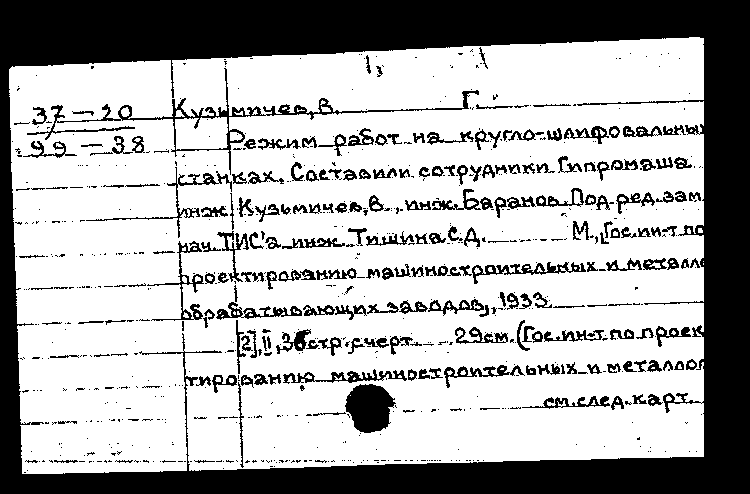 1,
37-20 Кузьмичев, В. Г.
99-38 Режим работ на кругло-шлифовальны
станках. Составили сотрудники Гипромаша
инж. Кузьмичев, В., инж. Баранов. Под. ред. зам
нач. ТИС'а инж. Тишина С.Д. М., [Гос. ин-т по
проектированию машиностроительных и металло
обрабатывающих заводов], 1933.
[2], II, 36 стр. с черт. 29см. (Гос. ин-т по проек
тированию машиностроительных и металлоо
см. след. карт.